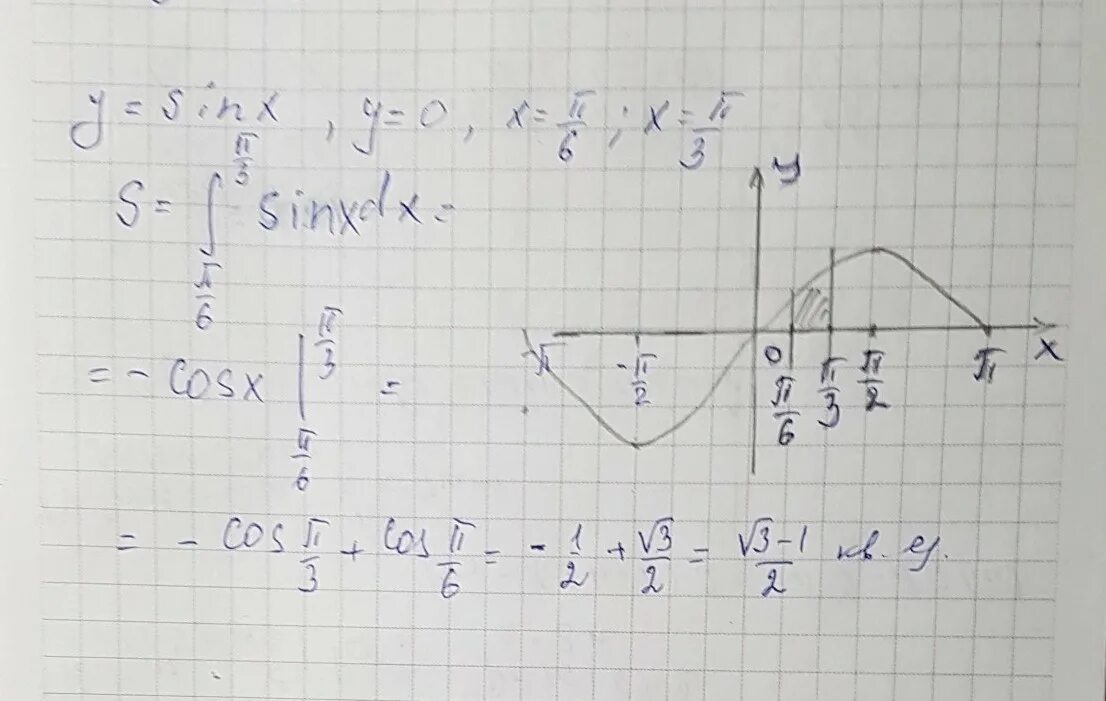 y = sinx , y=0, x=π/6 ; x=π/3
S = ∫_{π/6}^{π/3} sinxdx =
= - cosx |_{π/6}^{π/3} =
= - cos π/3 + cos π/6 = - 1/2 + √3/2 = (√3-1)/2 кв. ед.
y
-π -π/2 0 π/6 π/3 π/2 π x